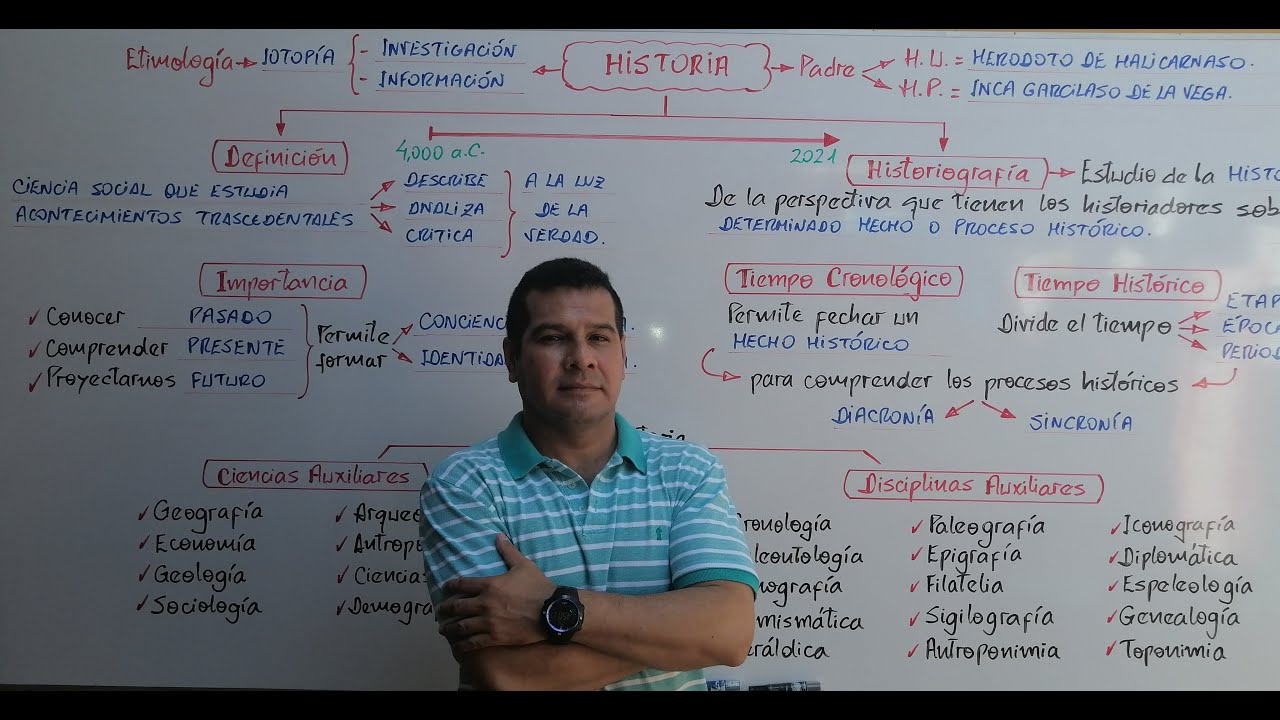 Etimología → IOTOPÍA { - INVESTIGACIÓN
- INFORMACIÓN
HISTORIA
Padre
H.U. = HERODOTO DE HALICARNASO.
H.P. = INCA GARCILASO DE LA VEGA.
4,000 a.C. 2021
Definición
CIENCIA SOCIAL QUE ESTUDIA
ACONTECIMIENTOS TRASCEDENTALES
DESCRIBE
ANALIZA
CRITICA
A LA LUZ
DE LA
VERDAD.
Historiografía → Estudio de la
De la perspectiva que tienen los historiadores
DETERMINADO HECHO O PROCESO HISTÓRICO.
Importancia
✓ Conocer PASADO
✓ Comprender PRESENTE
✓ Proyectarnos FUTURO
Permite
formar
Tiempo Cronológico
Permite fechar un
HECHO HISTÓRICO
Tiempo Histórico
Divide el tiempo
para comprender los procesos históricos
DIACRONÍA SINCRONÍA
Ciencias Auxiliares
✓ Geografía
✓ Economía
✓ Geología
✓ Sociología
✓ Ciencias
Disciplinas Auxiliares
✓ Paleografía
✓ Epigrafía
✓ Filatelia
✓ Sigilografía
✓ Antroponimia
✓ Iconografía
✓ Diplomática
✓ Espeleología
✓ Genealogía
✓ Toponimia